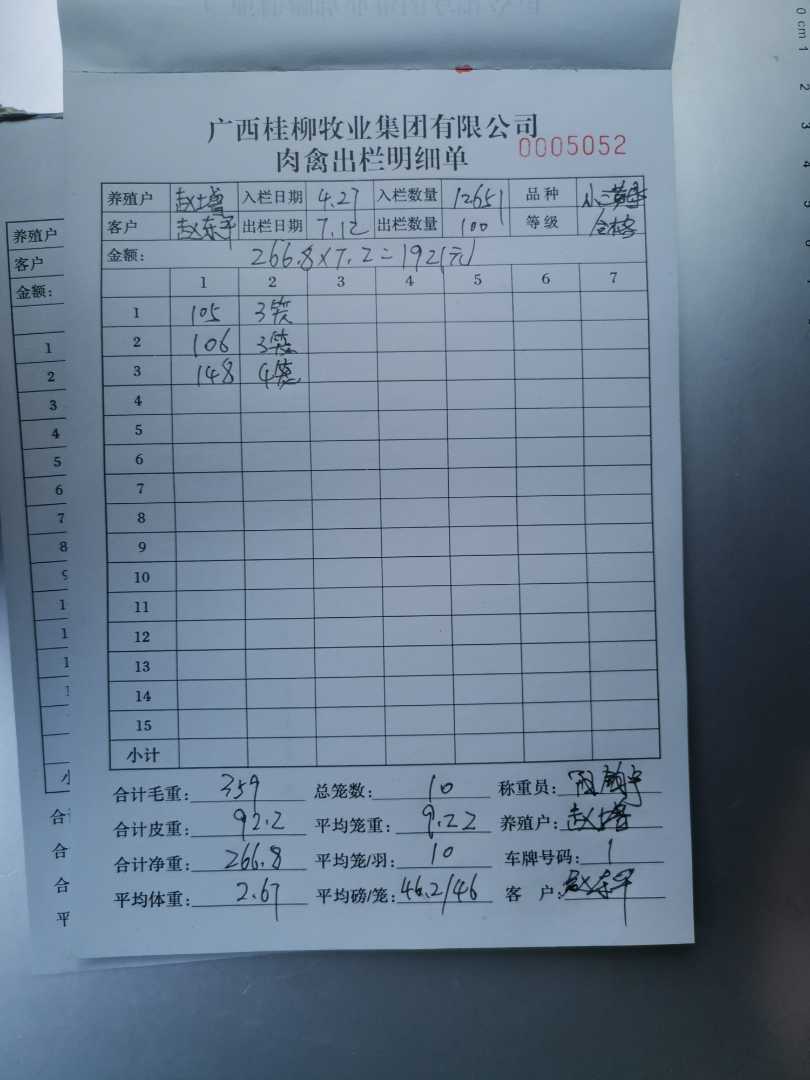 广西桂柳牧业集团有限公司
肉禽出栏明细单 0005052
养殖户 赵增 入栏日期 4.27 入栏数量 12651 品种 小黄
客户 赵东平 出栏日期 7.12 出栏数量 100 等级 合格
金额: 266.8×7.2=1921(元)
1 2 3 4 5 6 7
1 105 3笼
2 106 3笼
3 148 4笼
4
5
6
7
8
9
10
11
12
13
14
15
小计
合计毛重: 359 总笼数: 10 称重员:
合计皮重: 92.2 平均笼重: 9.22 养殖户: 赵增
合计净重: 266.8 平均笼/羽: 10 车牌号码: 1
平均体重: 2.67 平均磅/笼: 46.2/46 客 户: 赵东平
养殖户
客户
金额:
1
2
3
4
5
6
7
8
0 cm 1
2
3
4
5
6
7
8
9